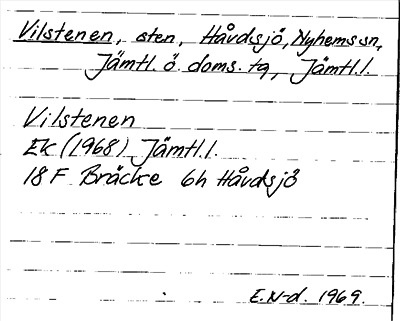 Vilstenen, sten, Håvdsjö, Nyhems sn,
Jämtl. ö. doms. tg, Jämtl. l.
Vilstenen
Ek (1968) Jämtl. l.
18 F Bräcke 6h Håvdsjö
E. N-d. 1969.